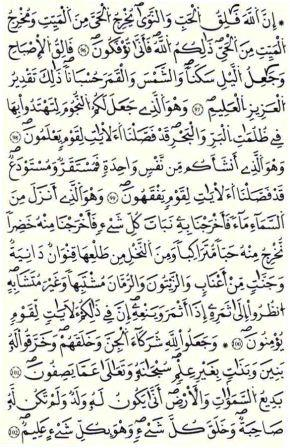 ۞ إِنَّ اَللَّهَ فَٰلِقُ اُلْحَبِّ وَالنَّوَىٰ يُخْرِجُ اُلْحَيَّ مِنَ اَلْمَيِّتِ وَمُخْرِجُ
اُلْمَيِّتِ مِنَ اَلْحَيِّ ذَٰلِكُمُ اُللَّهُ فَأَنَّىٰ تُوفَكُونَ 96 فَالِقُ اُلْإِصْبَاحِ
وَجَٰعِلُ اُلَّيْلِ سَكَناً وَالشَّمْسَ وَالْقَمَرَ حُسْبَاناً ذَٰلِكَ تَقْدِيرُ
اُلْعَزِيزِ اِلْعَلِيمِ 97 وَهُوَ اَلَّذِي جَعَلَ لَكُمُ اُلنُّجُومَ لِتَهْتَدُواْ بِهَا
فِي ظُلُمَٰتِ اِلْبَرِّ وَالْبَحْرِ قَدْ فَصَّلْنَا اَلْأٓيَٰتِ لِقَوْمٍ يَعْلَمُونَ 98
وَهُوَ اَلَّذِي أَنشَأَكُم مِّن نَّفْسٍ وَٰحِدَةٍ فَمُسْتَقَرٌّ وَمُسْتَوْدَعٌ
قَدْ فَصَّلْنَا اَلْأٓيَٰتِ لِقَوْمٍ يَفْقَهُونَ 99 وَهُوَ اَلَّذِي أَنزَلَ مِنَ
اَلسَّمَآءِ مَآءً فَأَخْرَجْنَا بِهِ نَبَاتَ كُلِّ شَيْءٍ فَأَخْرَجْنَا مِنْهُ خَضِراً
نُّخْرِجُ مِنْهُ حَبّاً مُّتَرَاكِباً وَمِنَ اَلنَّخْلِ مِن طَلْعِهَا قِنْوَانٌ دَانِيَةٌ
وَجَنَّٰتٍ مِّنْ أَعْنَابٍ وَالزَّيْتُونَ وَالرُّمَّانَ مُشْتَبِهاً وَغَيْرَ مُتَشَٰبِهٍ
اُنظُرُواْ إِلَىٰ ثَمَرِهِ إِذَا أَثْمَرَ وَيَنْعِهِ إِنَّ فِي ذَٰلِكُمْ لَأٓيَٰتٍ لِّقَوْمٍ
يُومِنُونَ 100 وَجَعَلُواْ لِلهِ شُرَكَآءَ اَلْجِنَّ وَخَلَقَهُمْ وَخَرَّقُواْ لَهُ
بَنِينَ وَبَنَٰتٍ بِغَيْرِ عِلْمٍ سُبْحَٰنَهُ وَتَعَٰلَىٰ عَمَّا يَصِفُونَ 101
بَدِيعُ اُلسَّمَٰوَٰتِ وَالْأَرْضِ أَنَّىٰ يَكُونُ لَهُ وَلَدٌ وَلَمْ تَكُن لَّهُ
صَٰحِبَةٌ وَخَلَقَ كُلَّ شَيْءٍ وَهُوَ بِكُلِّ شَيْءٍ عَلِيمٌ 102